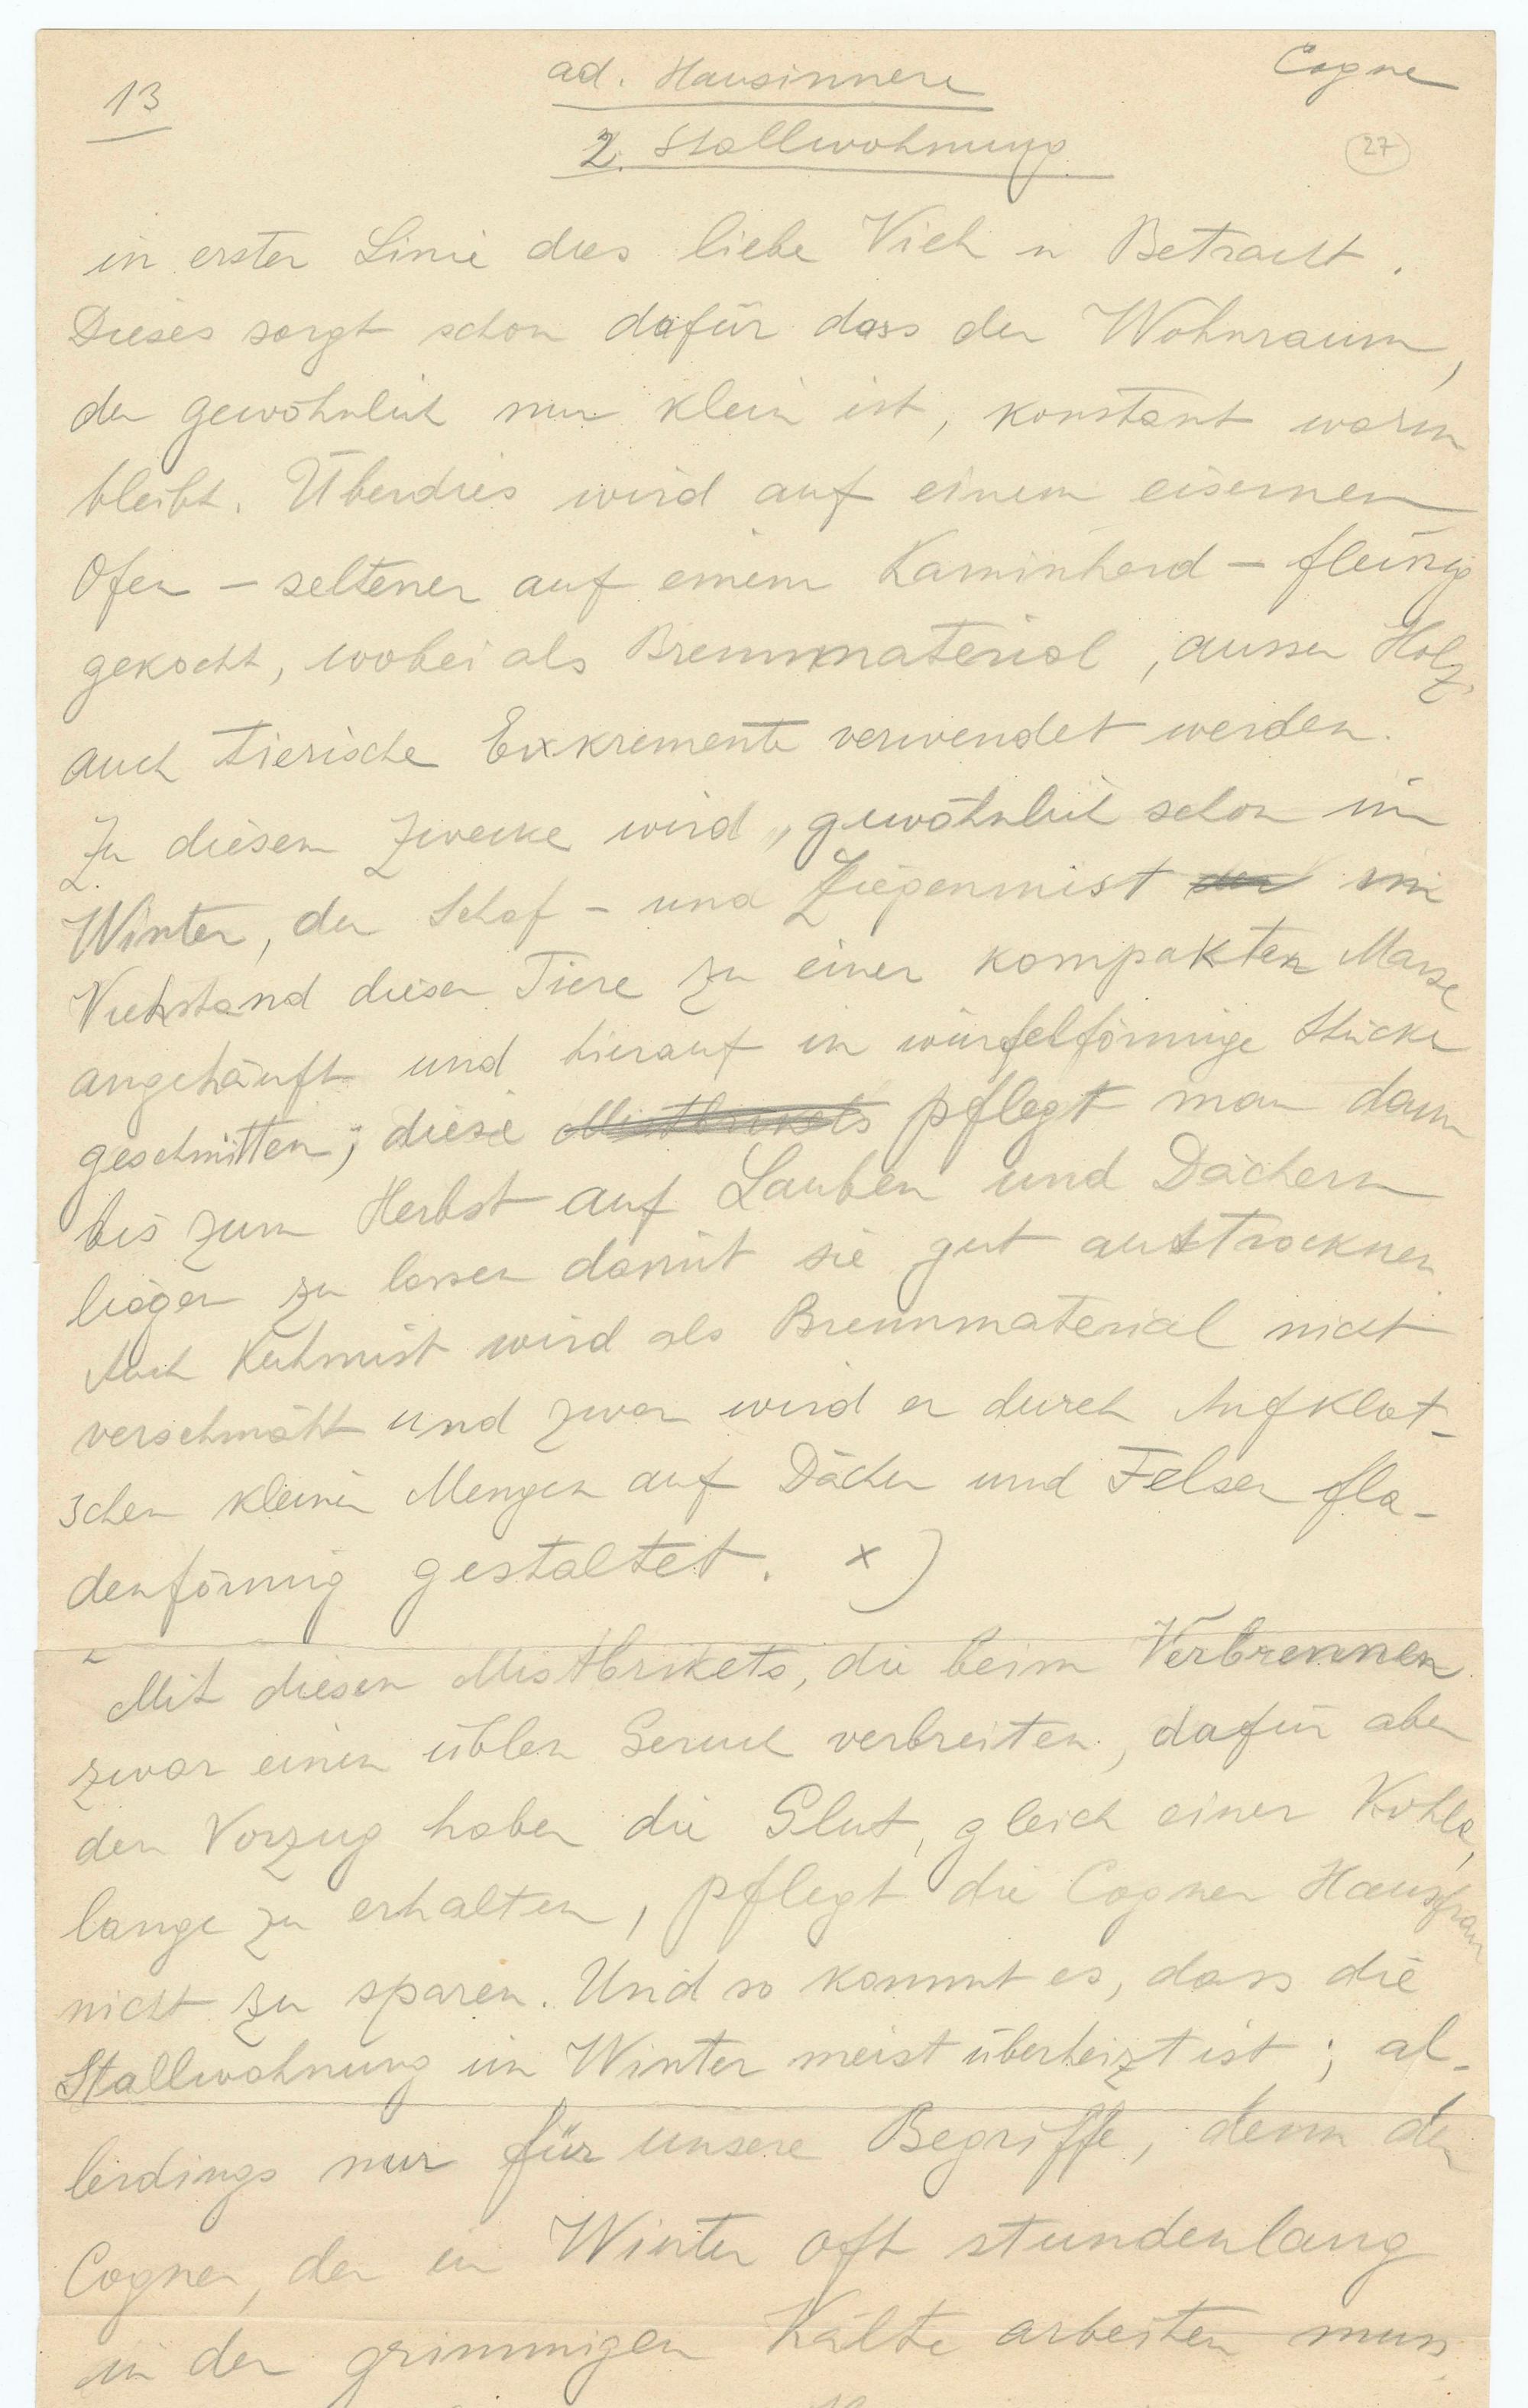 13
ad. Hausinnere
Cogne
2. Stallwohnung
27
in erster Linie das liebe Vieh in Betracht.
Dieses sorgt schon dafür dass der Wohnraum,
der gewöhnlich nur klein ist, konstant warm
bleibt. Überdies wird auf einem eisernen
Ofen – seltener auf einem Kaminherd – fleissig
gekocht, wobei als Brennmaterial, ausser Holz,
auch tierische Exkremente verwendet werden.
Zu diesem Zwecke wird, gewöhnlich schon im
Winter, der Schaf- und Ziegenmist im
Viehstand dieser Tiere zu einer kompakten Masse
angehäuft und hierauf in würfelförmige Stücke
geschnitten; diese Mistbrikets pflegt man dann
bis zum Herbst auf Lauben und Dächern
liegen zu lassen damit sie gut austrocknen.
Auch Kuhmist wird als Brennmaterial nicht
verschmäht und zwar wird er durch Aufklat-
schen kleiner Mengen auf Dächer und Felsen fla-
denförmig gestaltet. x)
Mit diesen Mistbrikets, die beim Verbrennen
zwar einen üblen Geruch verbreiten, dafür aber
den Vorzug haben die Glut, gleich einer Kohle,
lange zu erhalten, pflegt die Cogner Hausfrau
nicht zu sparen. Und so kommt es, dass die
Stallwohnung im Winter meist überheizt ist; al-
lerdings nur für unsere Begriffe, denn der
Cogner, der im Winter oft stundenlang
in der grimmigen Kälte arbeiten muss